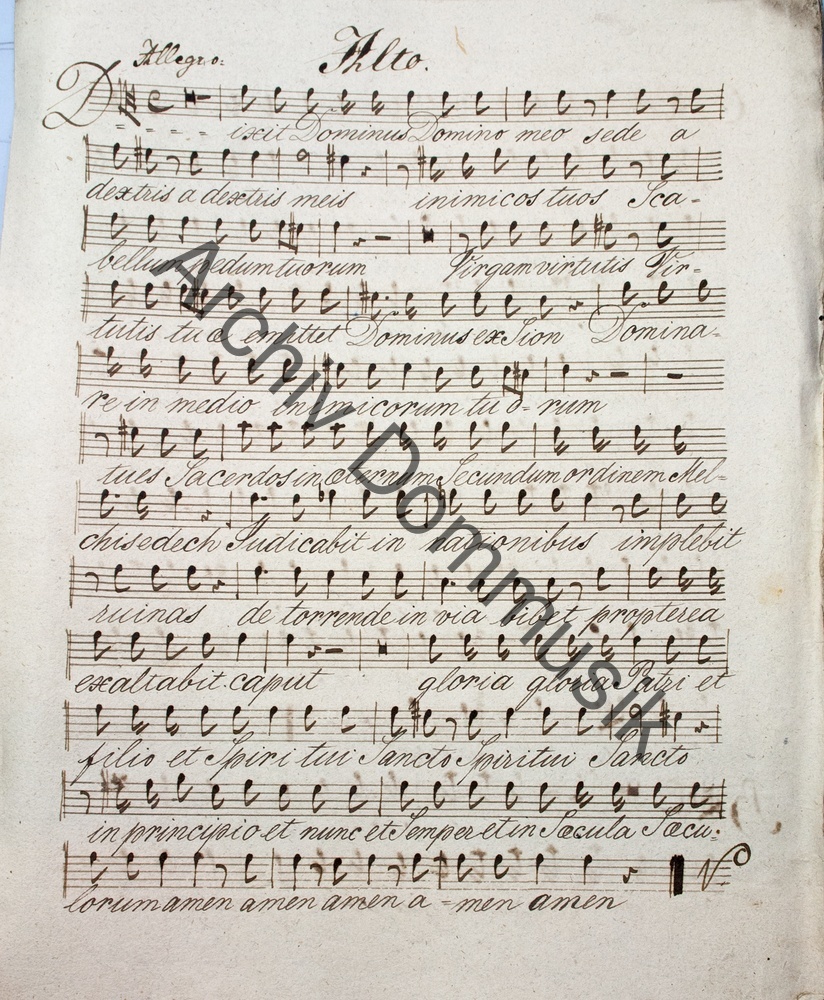 Allegro: Alto.
Dixit Dominus Domino meo sede a
dextris a dextris meis inimicos tuos Sca-
bellum pedum tuorum Virgam virtutis Vir-
tutis tuæ emittet Dominus ex Sion Domina-
re in medio inimicorum tu o-rum
tu es Sacerdos in æternum Secundum ordinem Mel-
chisedech Judicabit in nationibus implebit
ruinas de torrende in via bibet propterea
exaltabit caput gloria gloria Patri et
filio et Spiri tui Sancto Spiritui Sancto
in principio et nunc et Semper et in Sæcula Sæcu:
lorum amen amen amen a-men amen
Archiv Dommusik